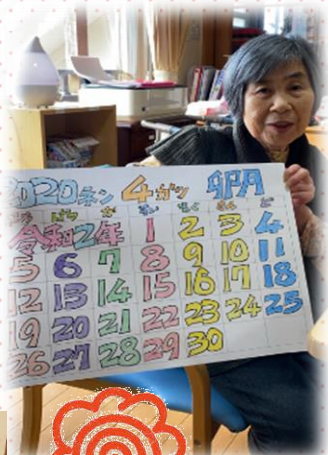 2020ネン 4ガツ 卯月
げつ か すい もく きん ど
令和2年 1 2 3 4
5 6 7 8 9 10 11
12 13 14 15 16 17 18
19 20 21 22 23 24 25
26 27 28 29 30